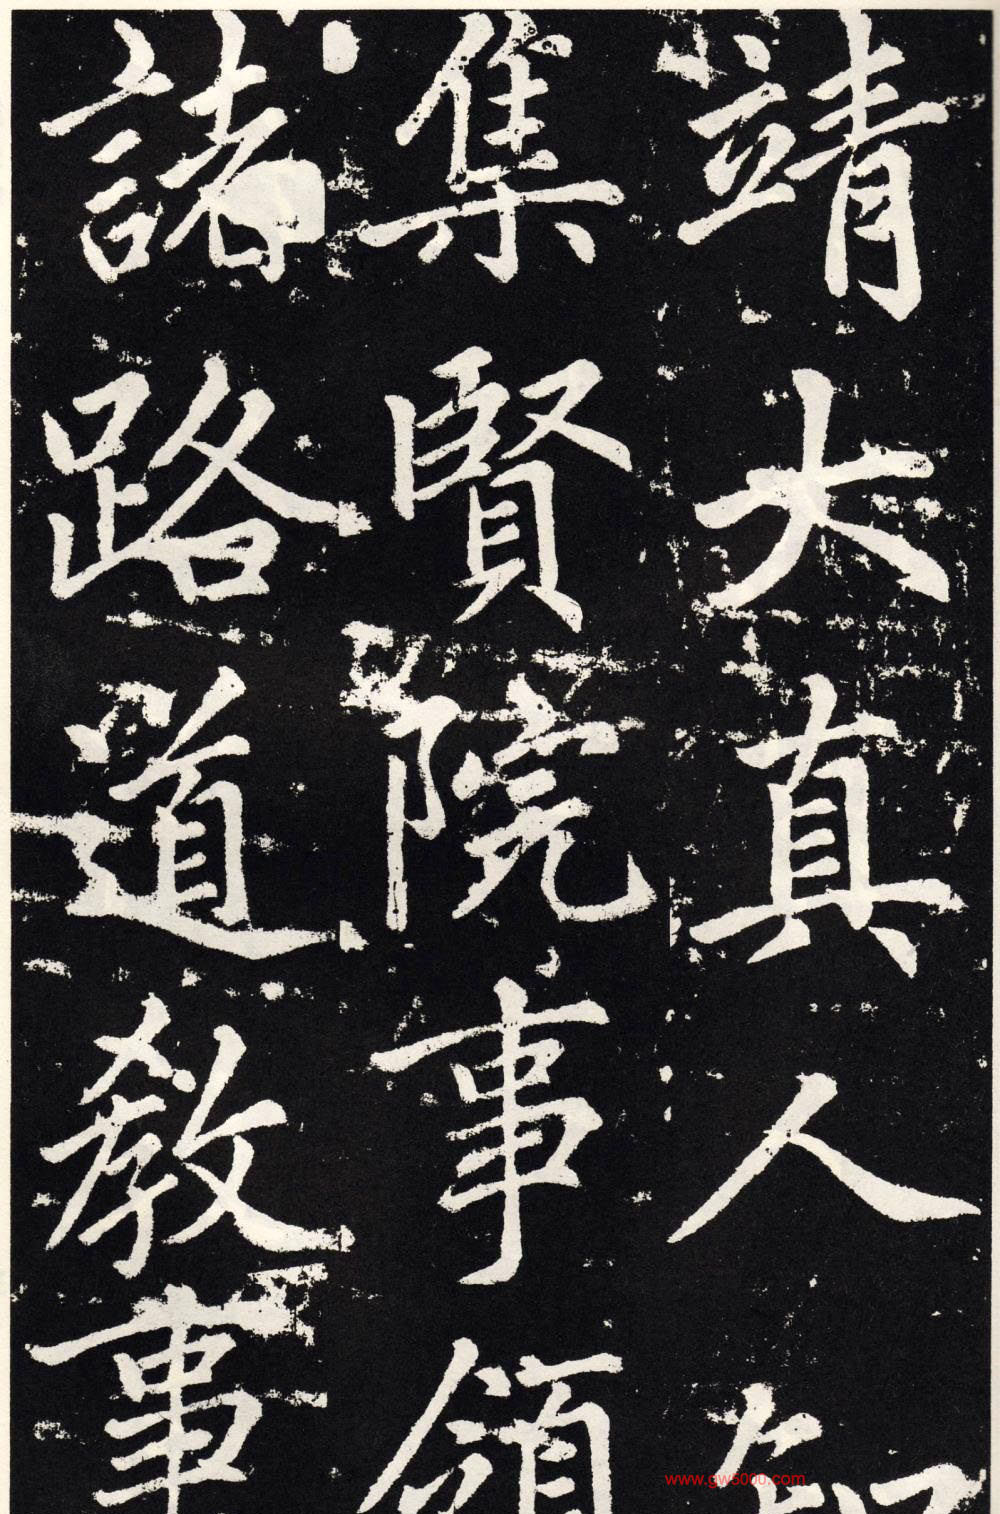 靖大真人知
集賢院事領
諸路道教事
www.gw5000.com